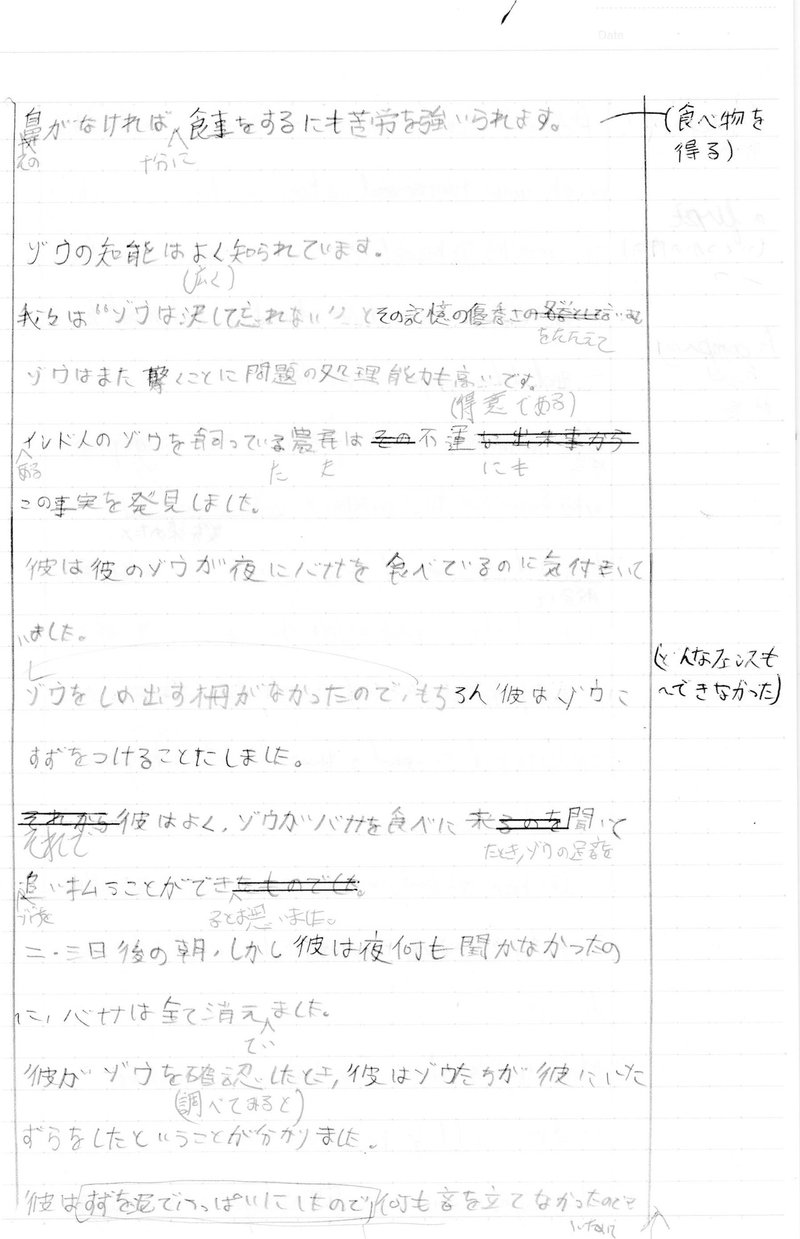 Date
鼻がなければ食事をするにも苦労を強いられます。
(食べ物を
得る)
その
十分に
ゾウの知能はよく知られています。
(広く)
我々は“ゾウは決して忘れない”とその記憶の優秀さの
をたたえて
ゾウはまた驚くことに問題の処理能力も高いです。
(得意である)
インド人のゾウを飼っている農民はその不運な出来事から
ある
た
にも
この事実を発見しました。
彼は彼のゾウが夜にバナナを食べているのに気付いて
いました。
(どんなフェンスも
〜できなかった)
ゾウをしめ出す柵がなかったので、もちろん彼はゾウに
すずをつけることにしました。
それから彼はよく、ゾウがバナナを食べに来るのを聞いて
それで
たとき,ゾウの足音を
追い払うことができたものでした。
ゾウを
ると思いました。
二・三日後の朝,しかし彼は夜何も聞かなかったの
に,バナナは全て消えました。
てい
彼がゾウを確認したとき,彼はゾウたちが彼にいた
(調べてみると)
ずらをしたということが分かりました。
彼はすずを泥でいっぱいにしたので何も音を立てなかったのです